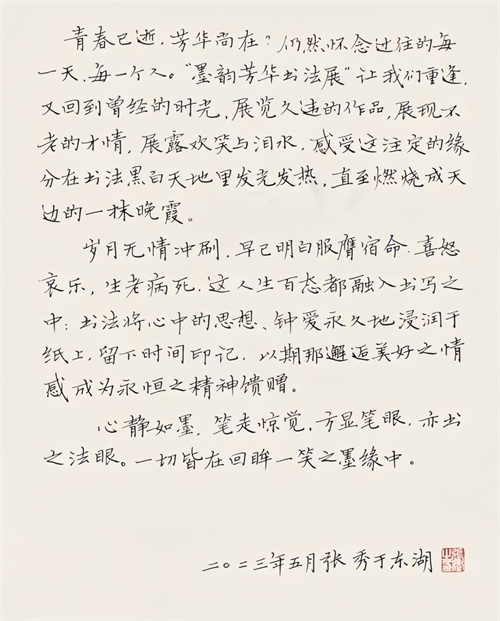 青春已逝，芳华尚在？仍然怀念过往的每
一天，每一个人。“墨韵芳华书法展”让我们重逢，
又回到曾经的时光，展览久违的作品，展现不
老的才情，展露欢笑与泪水，感受这注定的缘
分在书法黑白天地里发光发热，直至燃烧成天
边的一抹晚霞。
岁月无情冲刷，早已明白服膺宿命，喜怒
哀乐，生老病死，这人生百态都融入书写之
中；书法将心中的思想、钟爱永久地浸润于
纸上，留下时间印记，以期那邂逅美好之情
感成为永恒之精神馈赠。
心静如墨，笔走惊觉，方显笔眼，亦书
之法眼。一切皆在回眸一笑之墨缘中。
二〇二三年五月张秀于东湖